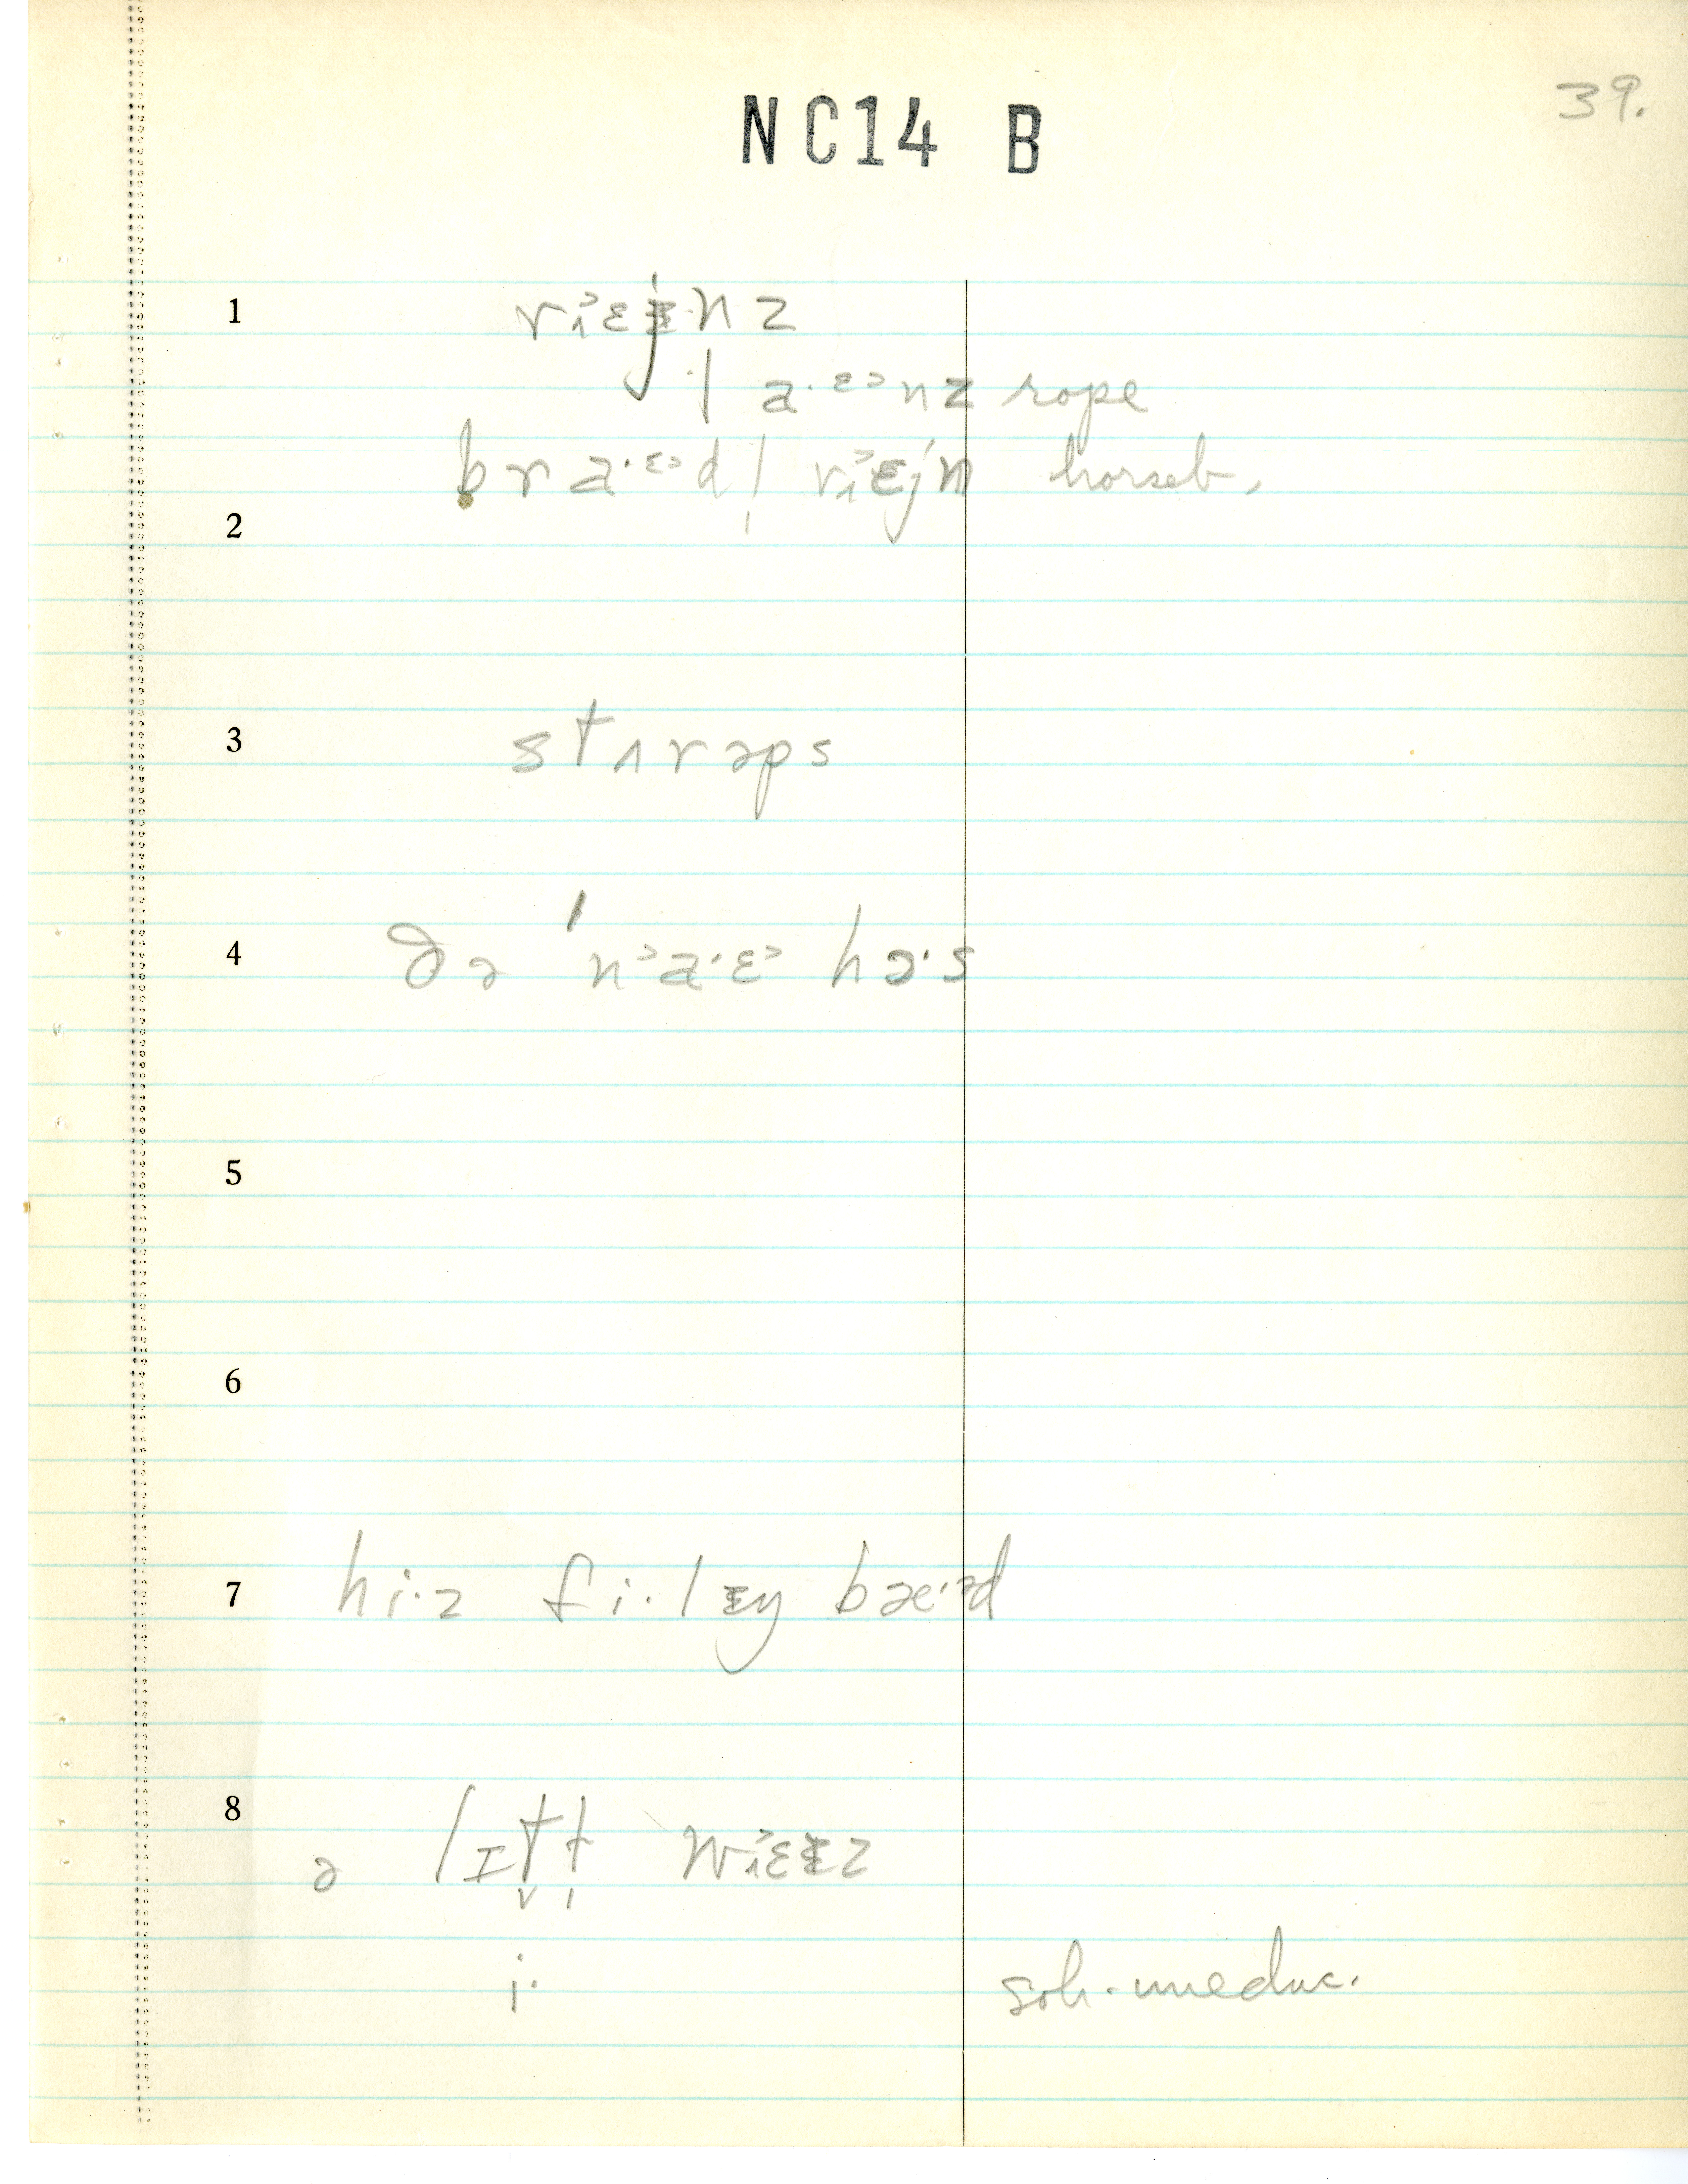 39.
NC14 B
1 ri˃ɛjnz
l a·ɛ˃nz rope
bra·ɛ˃dl̩ ri˃ɛjn horseb.
2
3 stʌrəps
4 ðə ˈn˃a·ɛ˃ hɔ·s
5
6
7 hi·z fi·lɪŋ bæ·əd
8
ə lɪt̬l̩ wi˃ɛɪz
i· soh-uneduc.